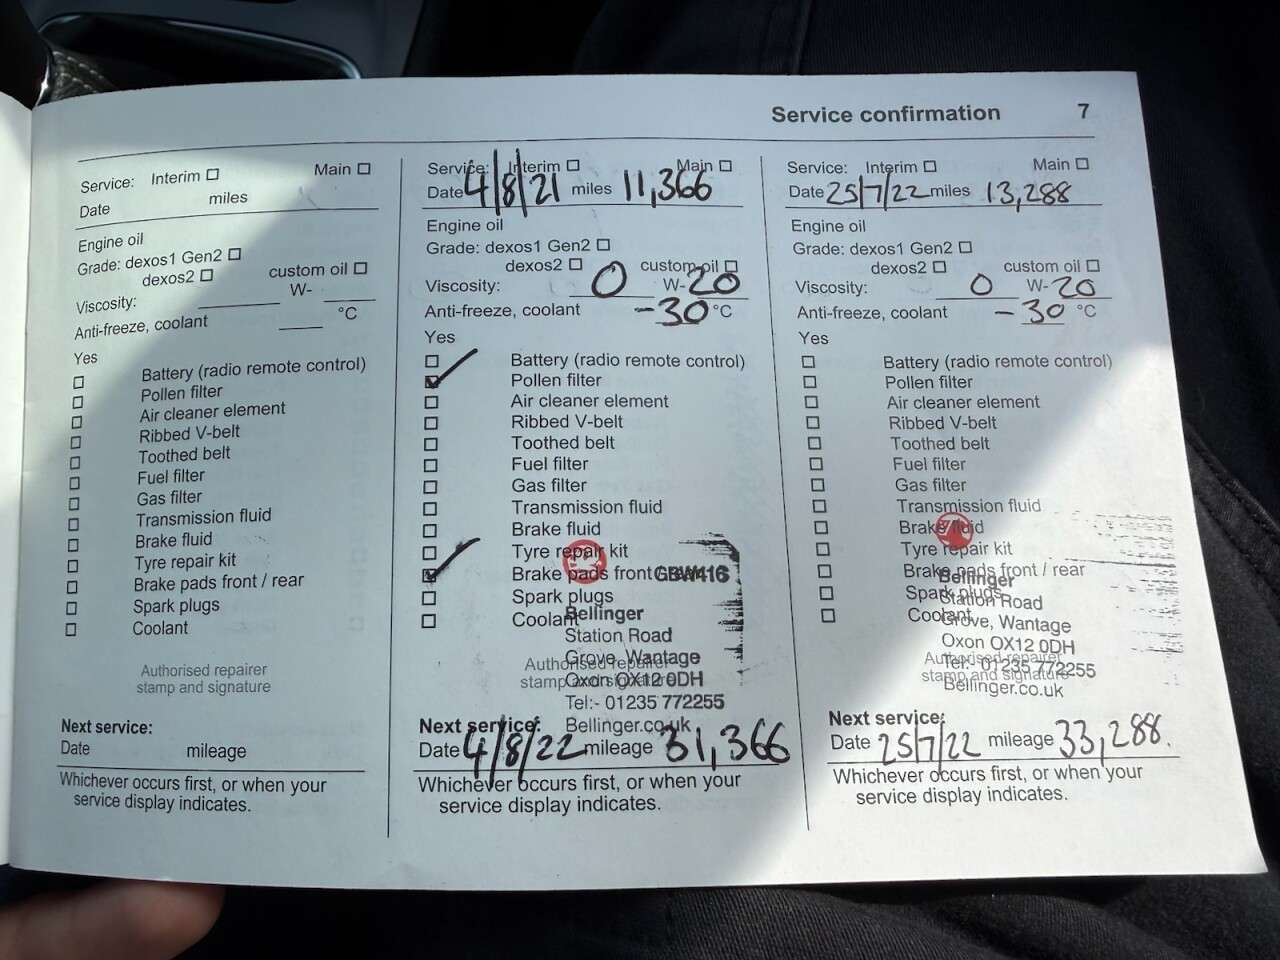 Service confirmation 7
Service: Interim Main
Date miles
Engine oil
Grade: dexos1 Gen2
dexos2 custom oil
Viscosity: W-
Anti-freeze, coolant °C
Yes
Battery (radio remote control)
Pollen filter
Air cleaner element
Ribbed V-belt
Toothed belt
Fuel filter
Gas filter
Transmission fluid
Brake fluid
Tyre repair kit
Brake pads front / rear
Spark plugs
Coolant
Authorised repairer
stamp and signature
Next service:
Date mileage
Whichever occurs first, or when your
service display indicates.
Service: Interim Main
Date 4/8/21 miles 11,366
Engine oil
Grade: dexos1 Gen2
dexos2 custom oil
Viscosity: 0 W-20
Anti-freeze, coolant -30 °C
Yes
Battery (radio remote control)
Pollen filter
Air cleaner element
Ribbed V-belt
Toothed belt
Fuel filter
Gas filter
Transmission fluid
Brake fluid
Tyre repair kit
Brake pads front
GBW416
Spark plugs
Coolant
Bellinger
Station Road
Grove, Wantage
Authorised repairer
Oxon OX12 0DH
stamp and signature
Tel:- 01235 772255
Bellinger.co.uk
Next service:
Date 4/8/22 mileage 31,366
Whichever occurs first, or when your
service display indicates.
Service: Interim Main
Date 25/7/22 miles 13,288
Engine oil
Grade: dexos1 Gen2
dexos2 custom oil
Viscosity: 0 W-20
Anti-freeze, coolant -30 °C
Yes
Battery (radio remote control)
Pollen filter
Air cleaner element
Ribbed V-belt
Toothed belt
Fuel filter
Gas filter
Transmission fluid
Brake fluid
Tyre repair kit
Brake pads front / rear
Bellinger
Spark plugs
Station Road
Coolant
Grove, Wantage
Oxon OX12 0DH
Authorised repairer
Tel:- 01235 772255
stamp and signature
Bellinger.co.uk
Next service:
Date 25/7/22 mileage 33,288.
Whichever occurs first, or when your
service display indicates.